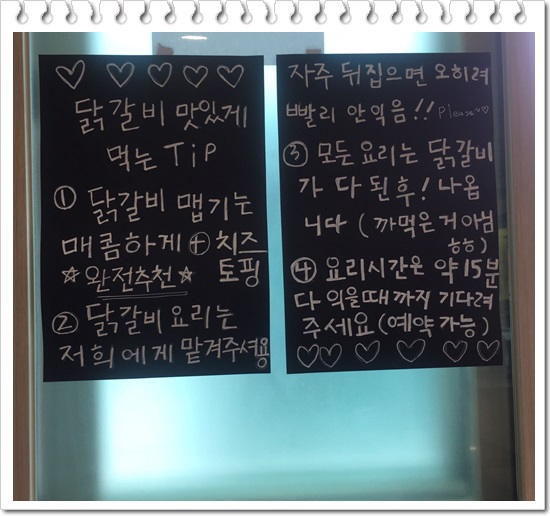 닭갈비 맛있게
먹는 TiP
① 닭갈비 맵기는
매콤하게 ⊕ 치즈
☆완전추천☆ 토핑
② 닭갈비 요리는
저희에게 맡겨주셔용
자주 뒤집으면 오히려
빨리 안익음!! Please~♡
③ 모든 요리는 닭갈비
가 다 된 후! 나옵
니다 (까먹은거 아님
ㅎㅎ)
④ 요리시간은 약 15분
다 익을때까지 기다려
주세요 (예약가능)